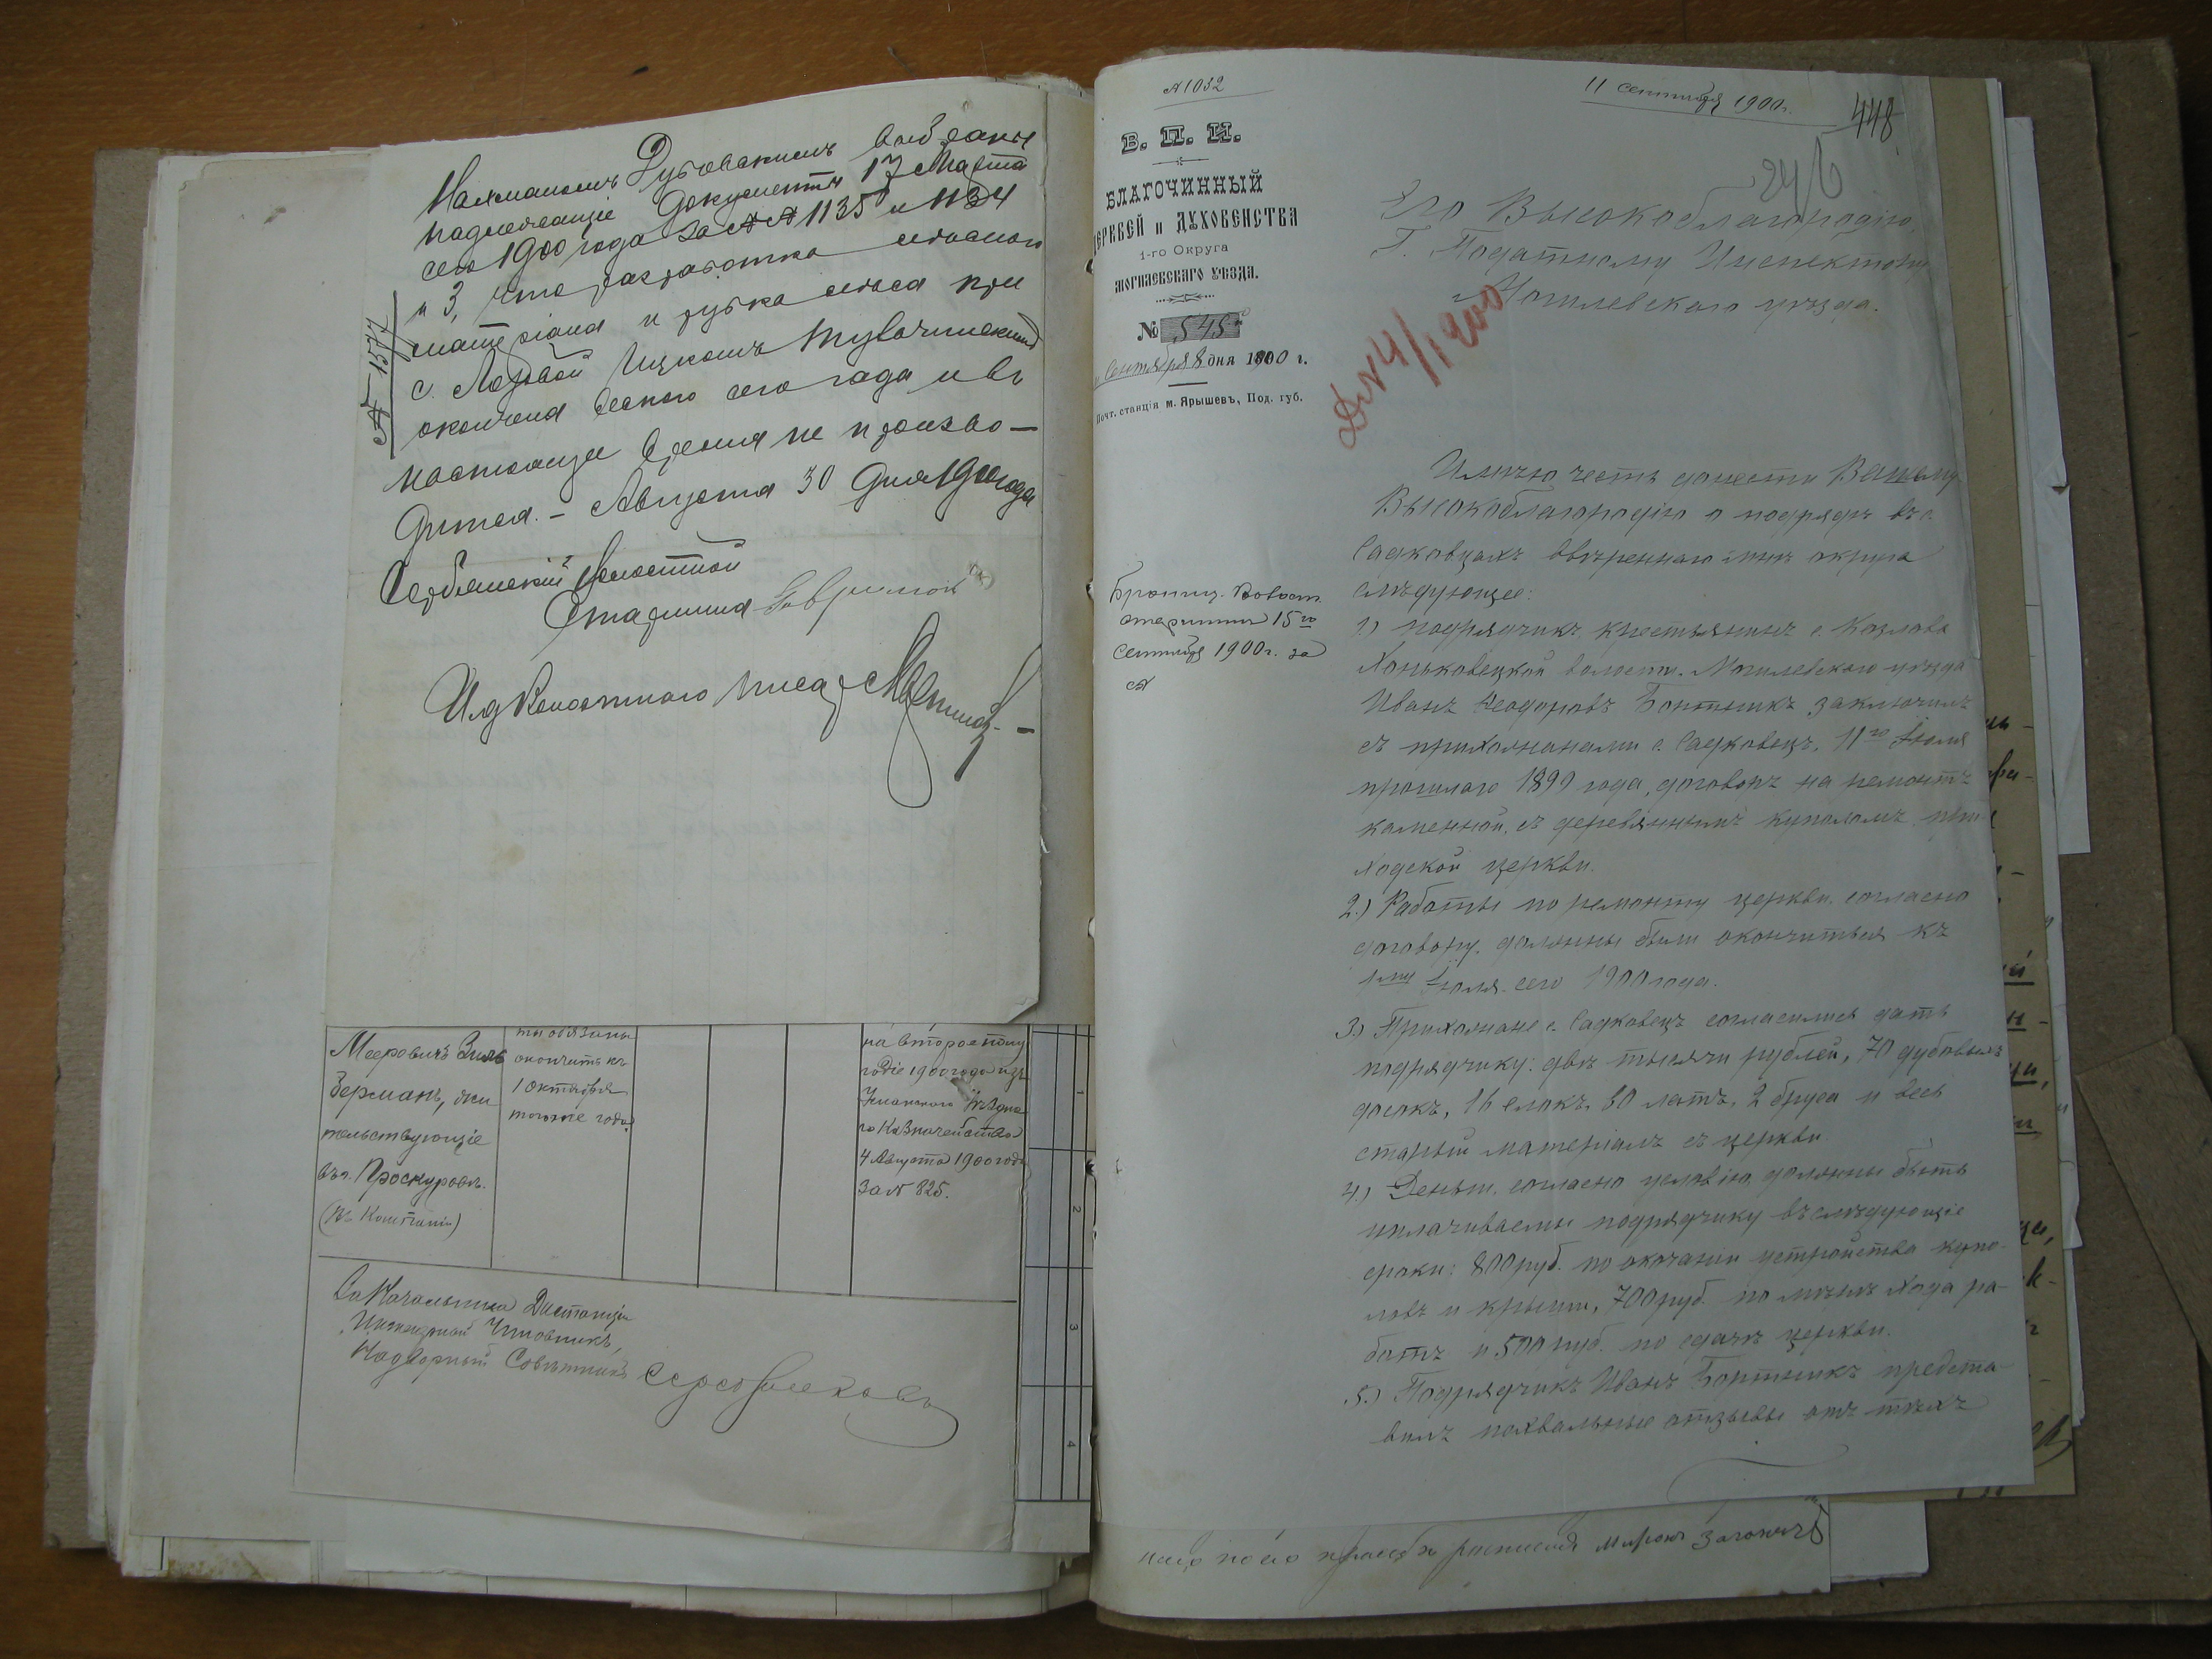 Нахманомъ Дубовакимъ выбраны
надлежащіе документы 17 Марта
сего 1900 года за №№ 1135 и 1134
и 3, что разработка лѣсного
матеріала и рубка лѣса при
с. Лозовой Ицкомъ
окончена весною сего года и въ
настоящее время не произво-
дится. - Августа 30 дня 1900 года
№ 1577
Сербянскій Волостной
Старшина
Ид Волостного писаря
Мееровичъ Зиль
берманъ, жи
тельствующіе
въ г. Проскуровѣ.
(въ Компаніи)
ты обязаны
окончить къ
1 Октября
того же года
на второе полу
годіе 1900 года изъ
Уманского Уѣздна
го Казначейства
4 Августа 1900 года
за № 825.
1
2
3
4
За Начальника Дистанціи
Инженерный Чиновникъ,
Надворный Совѣтникъ
№ 1032
11 сентября 1900 г.
448
В. П. И.
БЛАГОЧИННЫЙ
ЦЕРКВЕЙ и ДУХОВЕНСТВА
1-го Округа
МОГИЛЕВСКАГО УѢЗДА.
№ 545
Сентября 8 дня 1900 г.
Почт. станція м. Ярышевъ, Под. губ.
Его Высокоблагородію,
Г. Податному Инспектору
Могилевскаго уѣзда.
Д№ 4/1900
Бронниц. Волост.
старшинѣ 15го
сентября 1900 г. за
№
Имѣю честь донести Вашему
Высокоблагородію о подрядѣ въ с.
Садковцахъ ввѣреннаго мнѣ округа
слѣдующее:
1.) подрядчикъ крестьянинъ с. Козлова
Хоньковецкой волости. Могилевскаго уѣзда
Иванъ Ѳеодоровъ Бортникъ заключилъ
съ прихожанами с. Садковецъ, 11го Іюля
прошлаго 1899 года, договоръ на ремонтъ
каменной, съ деревяннымъ куполомъ при-
ходской церкви.
2.) Работы по ремонту церкви, согласно
договору, должны были окончиться къ
1му Іюля сего 1900 года.
3.) Прихожане с. Садковецъ согласились дать
подрядчику: двѣ тысячи рублей, 70 дубовыхъ
досокъ, 16 елокъ, 80 латъ, 2 бруса и весь
старый матеріалъ съ церкви.
4.) Деньги, согласно условію, должны быть
уплачиваемы подрядчику въ слѣдующіе
сроки: 800 руб. по окочаніи устройства купо-
ловъ и крыши, 700 руб. по мѣрѣ хода ра-
ботъ и 500 руб. по сдачѣ церкви.
5.) Подрядчикъ Иванъ Бортникъ предста-
вилъ похвальные отзывы отъ тѣхъ
его просьбѣ росписался Миронъ